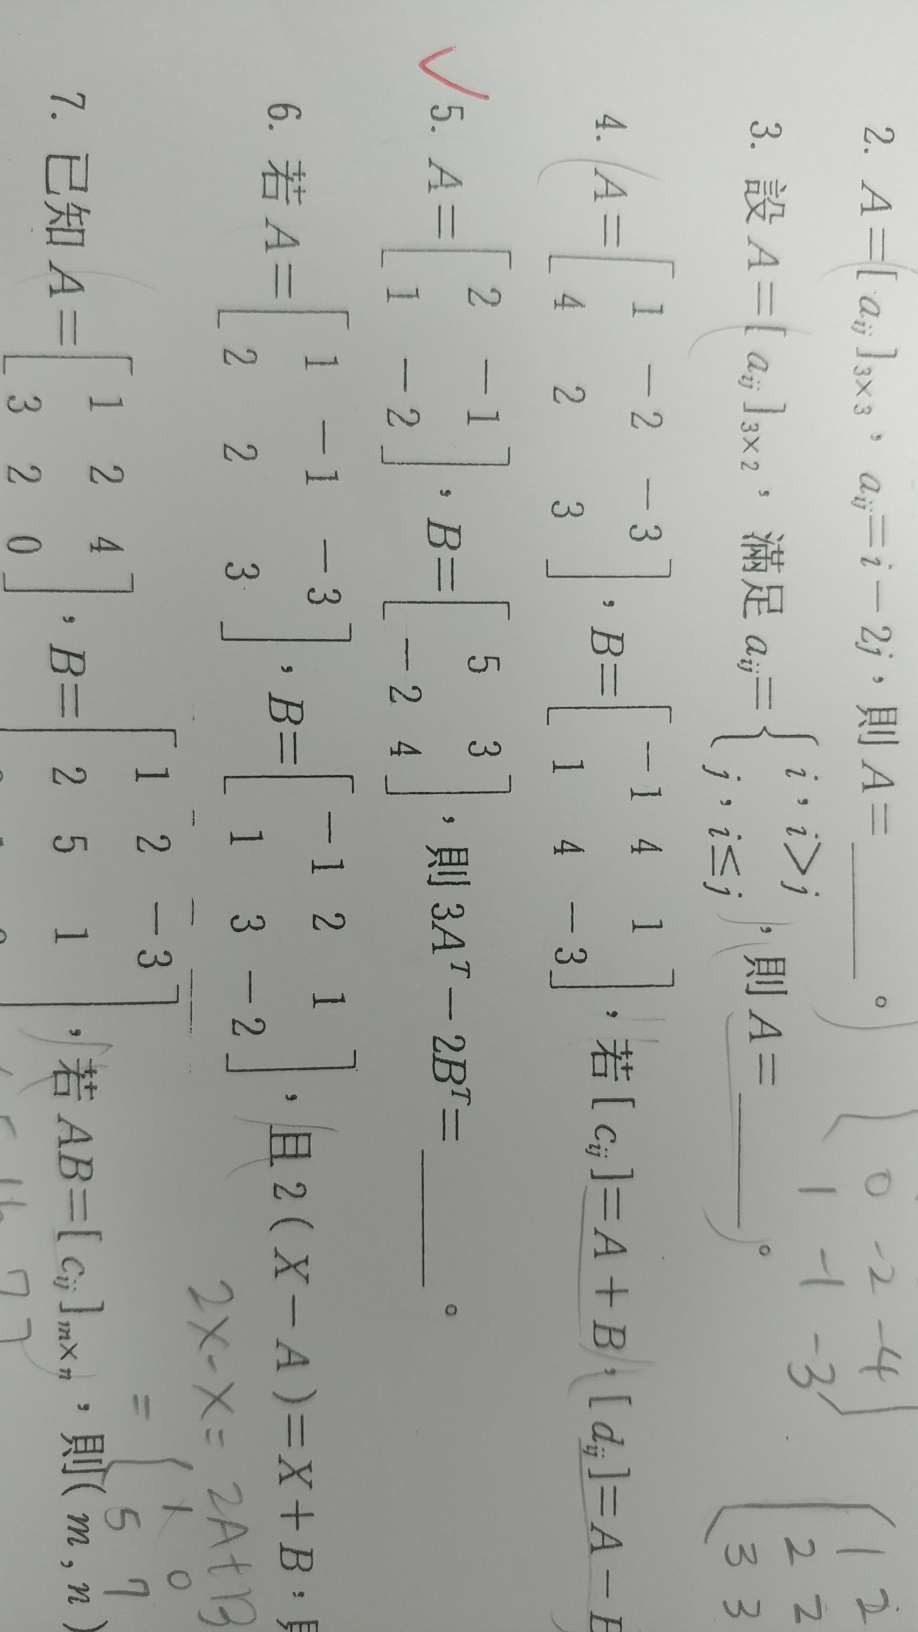 2. A=[aij]3×3，aij=i−2j，則A=______。
0 -2 -4
1 -1 -3
3. 設A=[aij]3×2，滿足aij={ i，i>j
j，i≤j ，則A=______。
1 2
2 2
3 3
4. A=[ 1 −2 −3
4 2 3 ]，B=[ −1 4 1
1 4 −3 ]，若[cij]=A+B，[dij]=A−
5. A=[ 2 −1
1 −2 ]，B=[ 5 3
−2 4 ]，則3Aᵀ−2Bᵀ=______。
6. 若A=[ 1 −1 −3
2 2 3 ]，B=[ −1 2 1
1 3 −2 ]，且2(X−A)=X+B，
2X-X=2A+B
=[ 1 0
5 7
7. 已知A=[ 1 2 4
3 2 0 ]，B=[ 1 2 −3
2 5 1 ]，若AB=[cij]m×n，則(m,n)